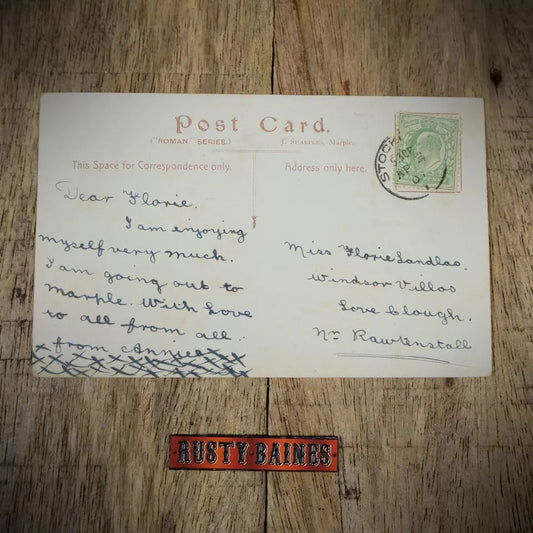 Post Card.
("ROMAN SERIES.) J. SHARPLES, Marple.
This Space for Correspondence only.
Address only here.
Dear Florie.
I am enjoying
myself very much.
I am going out to
marple. With Love
to all from all.
from Annie
Miss Florie Sandlas.
Windsor Villas
Love Clough.
Nr Rawtenstall
STOCK
RUSTY·BAINES